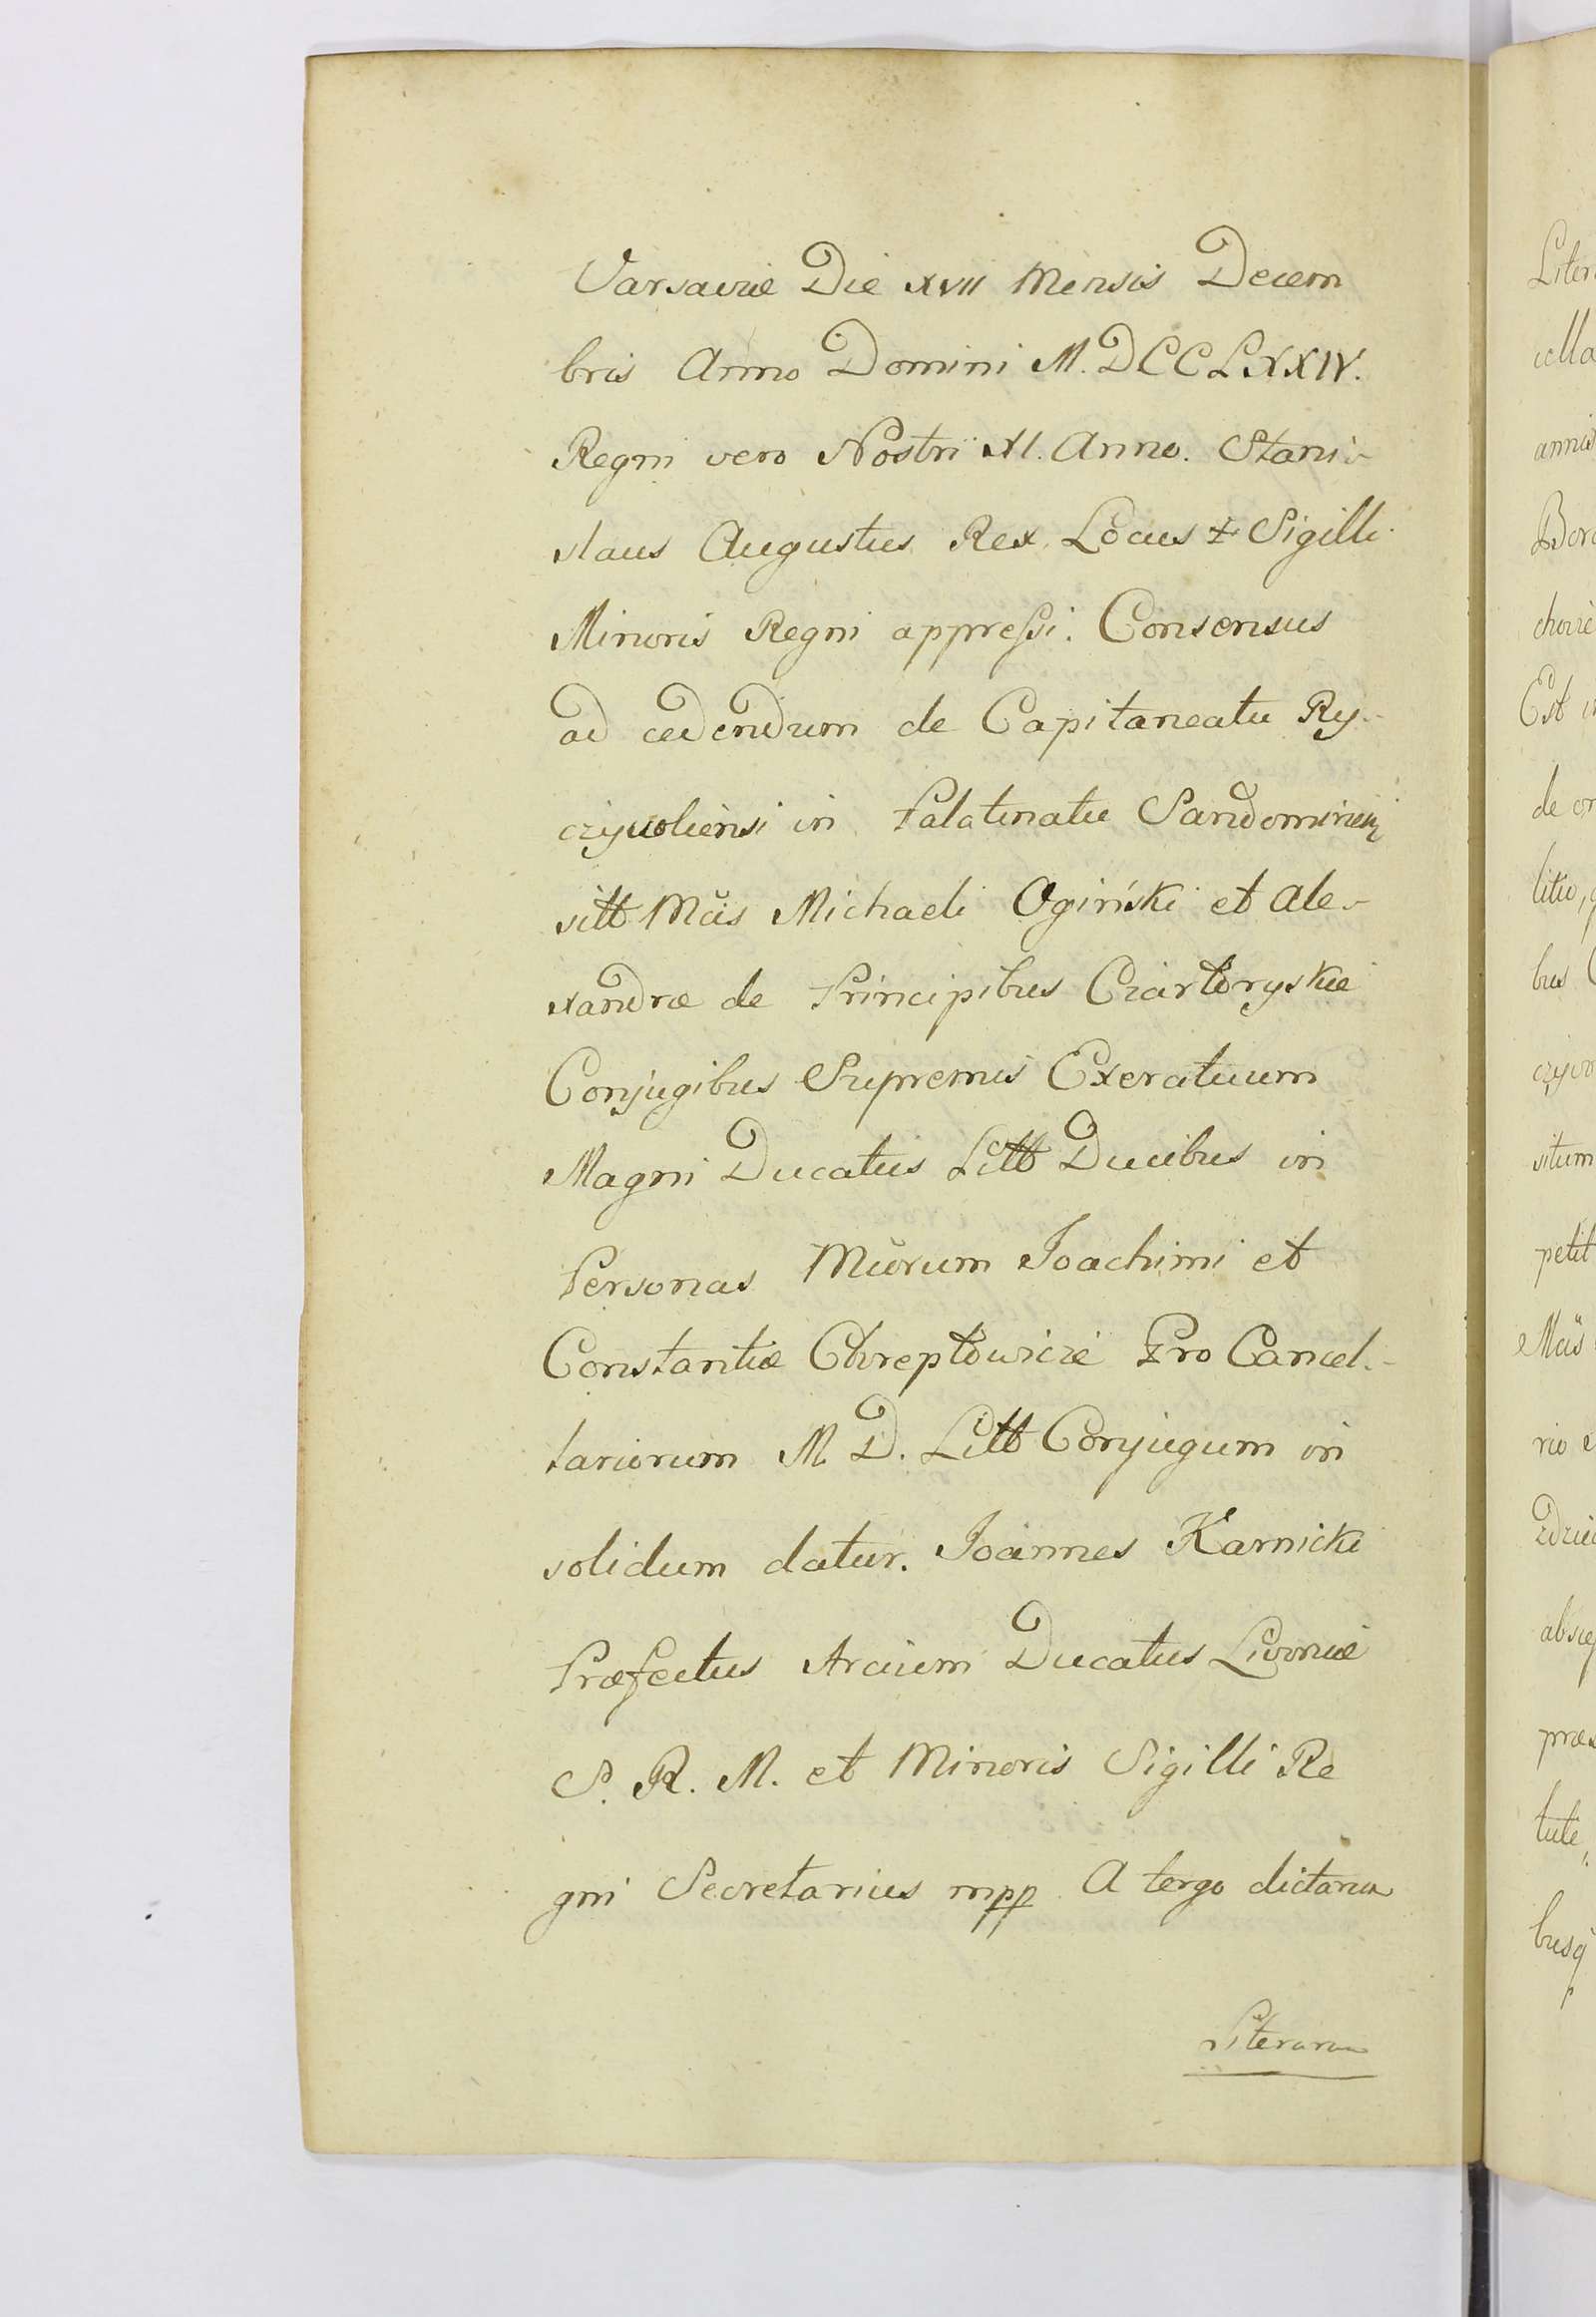 Varsaviæ Die XVII Mensis Decem
bris Anno Domini M.DCCLXXIV.
Regni vero Nostri XI. Anno. Stani-
slaus Augustus Rex. Locus + Sigilli
Minoris Regni appreſsi. Consensus
ad cedendum de Capitaneatu Ry-
czyvoliensi in Palatinatu Sandomirien
sitt Mcis Michaeli Ogiński et Ale-
xandræ de Principibus Czartoryskie
Conjugibus Supremis Exercituum
Magni Ducatus Litt Ducibus in
Personas Mcorum Joachimi et
Constantiæ Chreptowicze Pro Cancel-
lariorum M. D. Litt Conjugum in
solidum datur. Joannes Karnicki
Præfectus Arcium Ducatus Livoniæ
S. R. M. et Minoris Sigilli Re
gni Secretarius mpp A tergo dictarum
Literarum
Liter
cella
annis
Est
de
bus
situm
petit